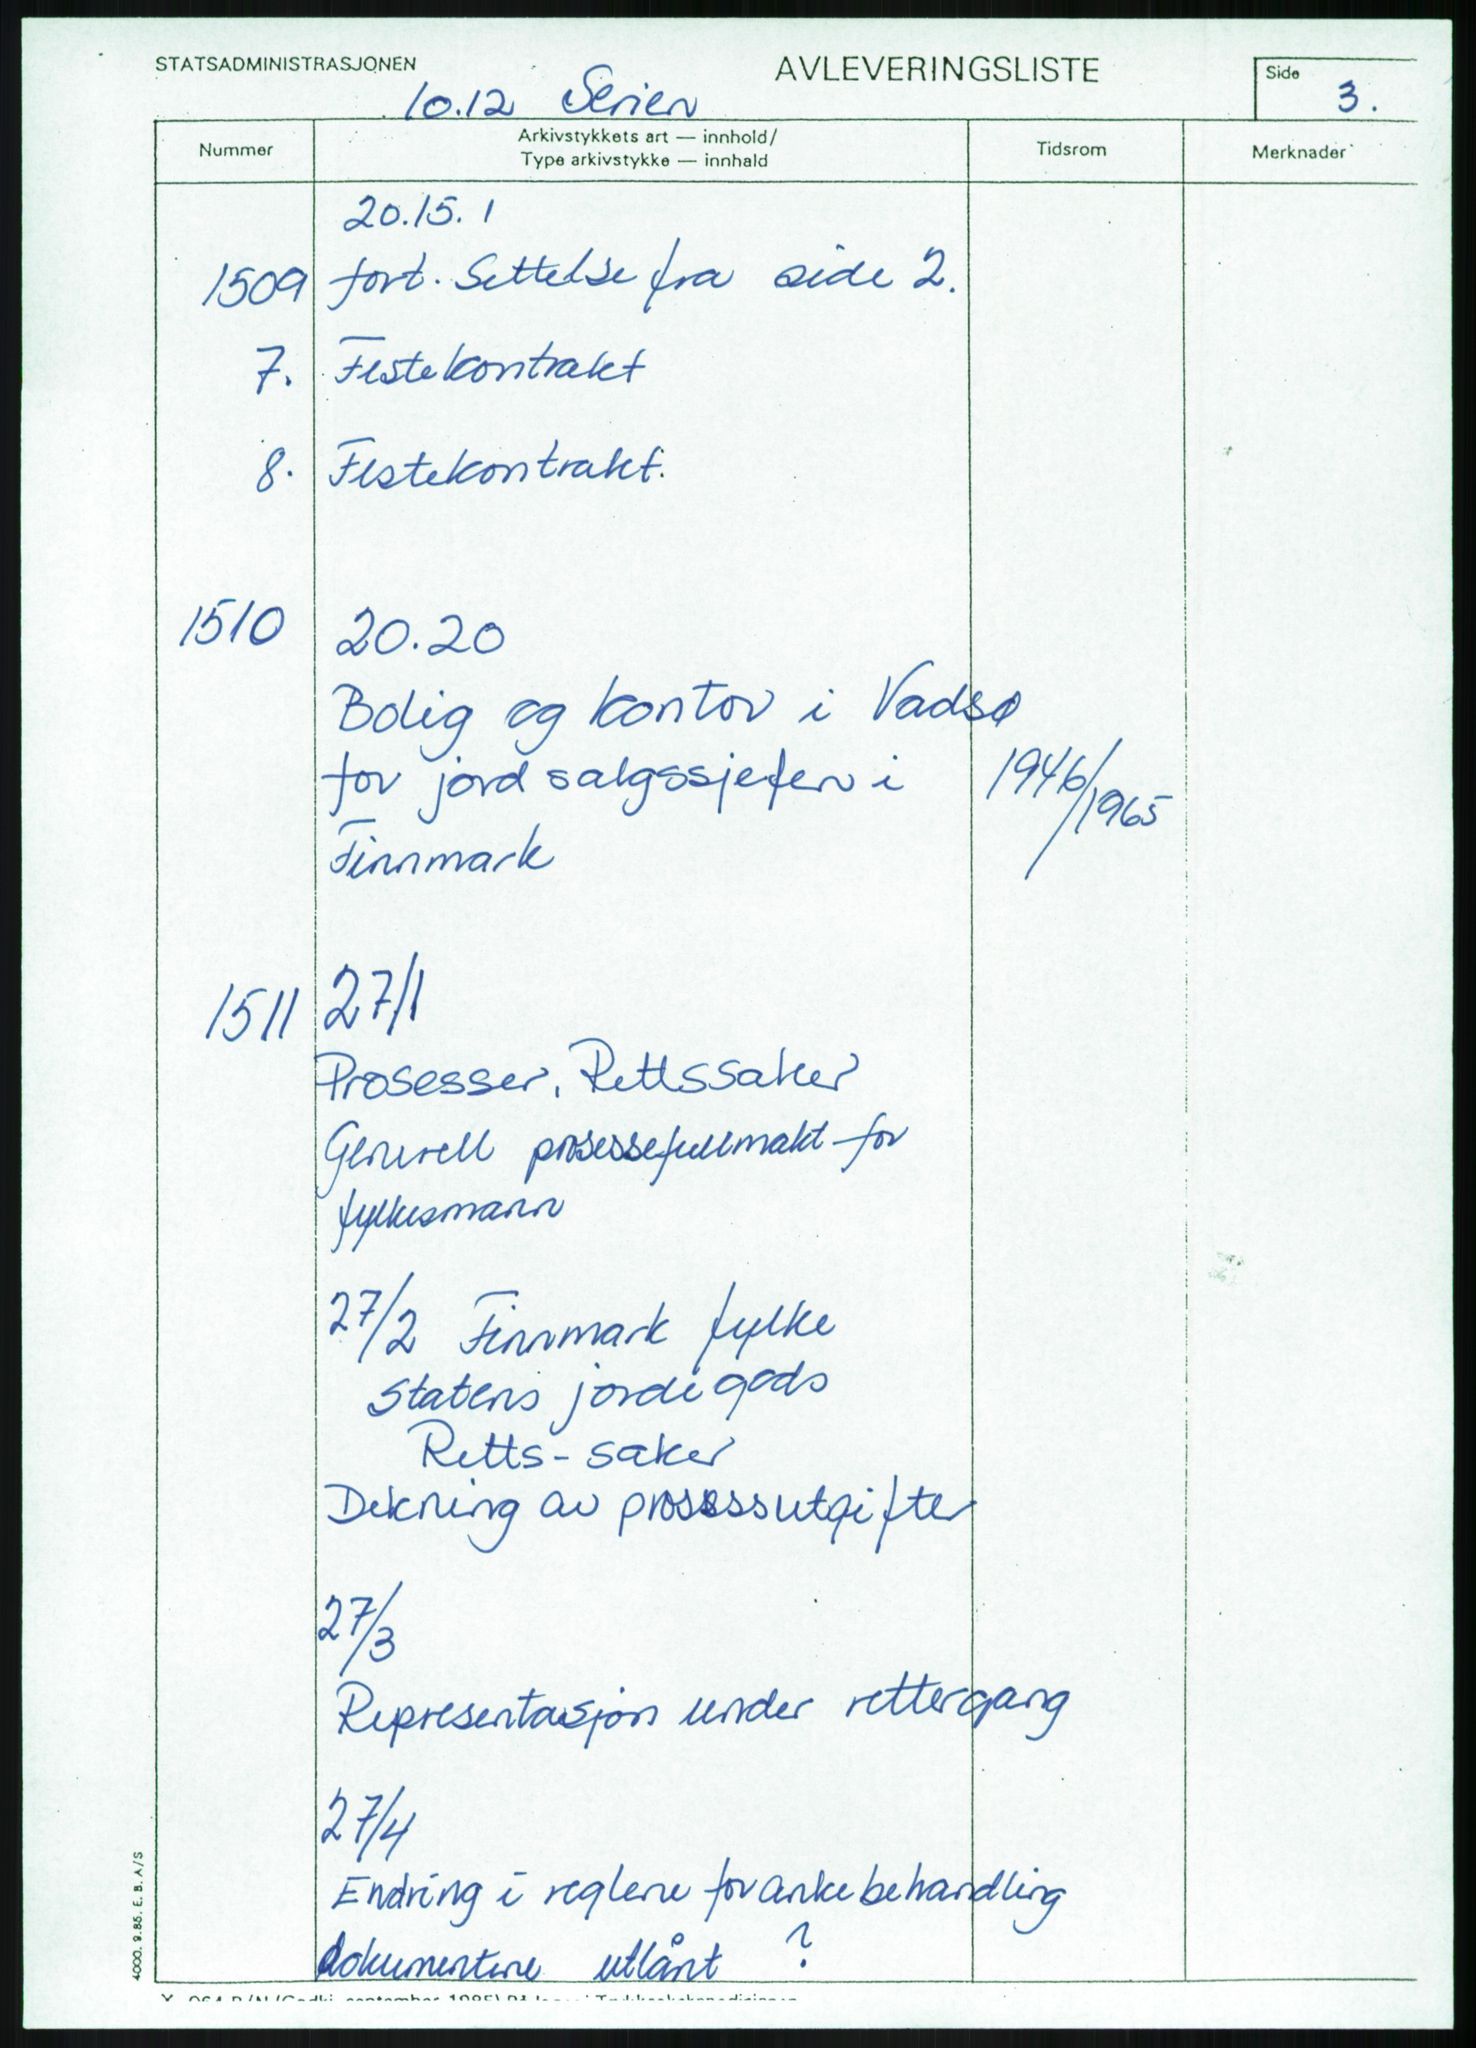 STATSADMINISTRASJONEN
AVLEVERINGSLISTE
Side
3.
10.12 Serien
Nummer
Arkivstykkets art — innhold/
Type arkivstykke — innhald
Tidsrom
Merknader
20.15.1
1509 fort. Settelse fra side 2.
7. Festekontrakt
8. Festekontrakt.
1510 20.20
Bolig og kontor i Vadsø
for jordsalgssjefen i 1946/1965
Finnmark
1511 27/1
Prosesser, Rettssaker
Generell prosessefullmakt for
fylkesmann
27/2 Finnmark fylke
Statens jordegods
Retts-saker
Dekning av prosessutgifter
27/3
Representasjon under rettergang
27/4
Endring i reglene for ankebehandling
dokumentene utlånt ?
4000. 9.85. E. B. A/S